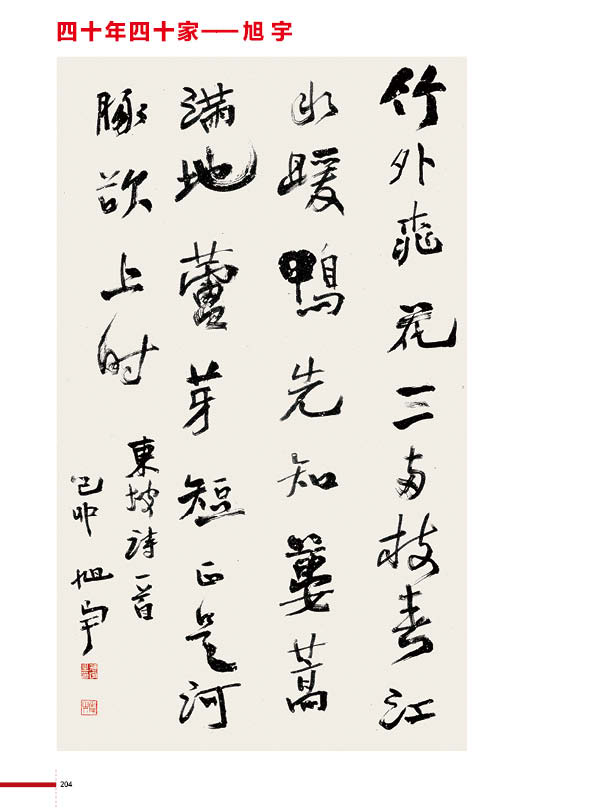 四十年四十家——旭宇
竹外飛花三两枝春江
水暖鴨先知蔞蒿
满地蘆芽短正是河
豚欲上时
東坡詩一首
己卯 旭宇
204